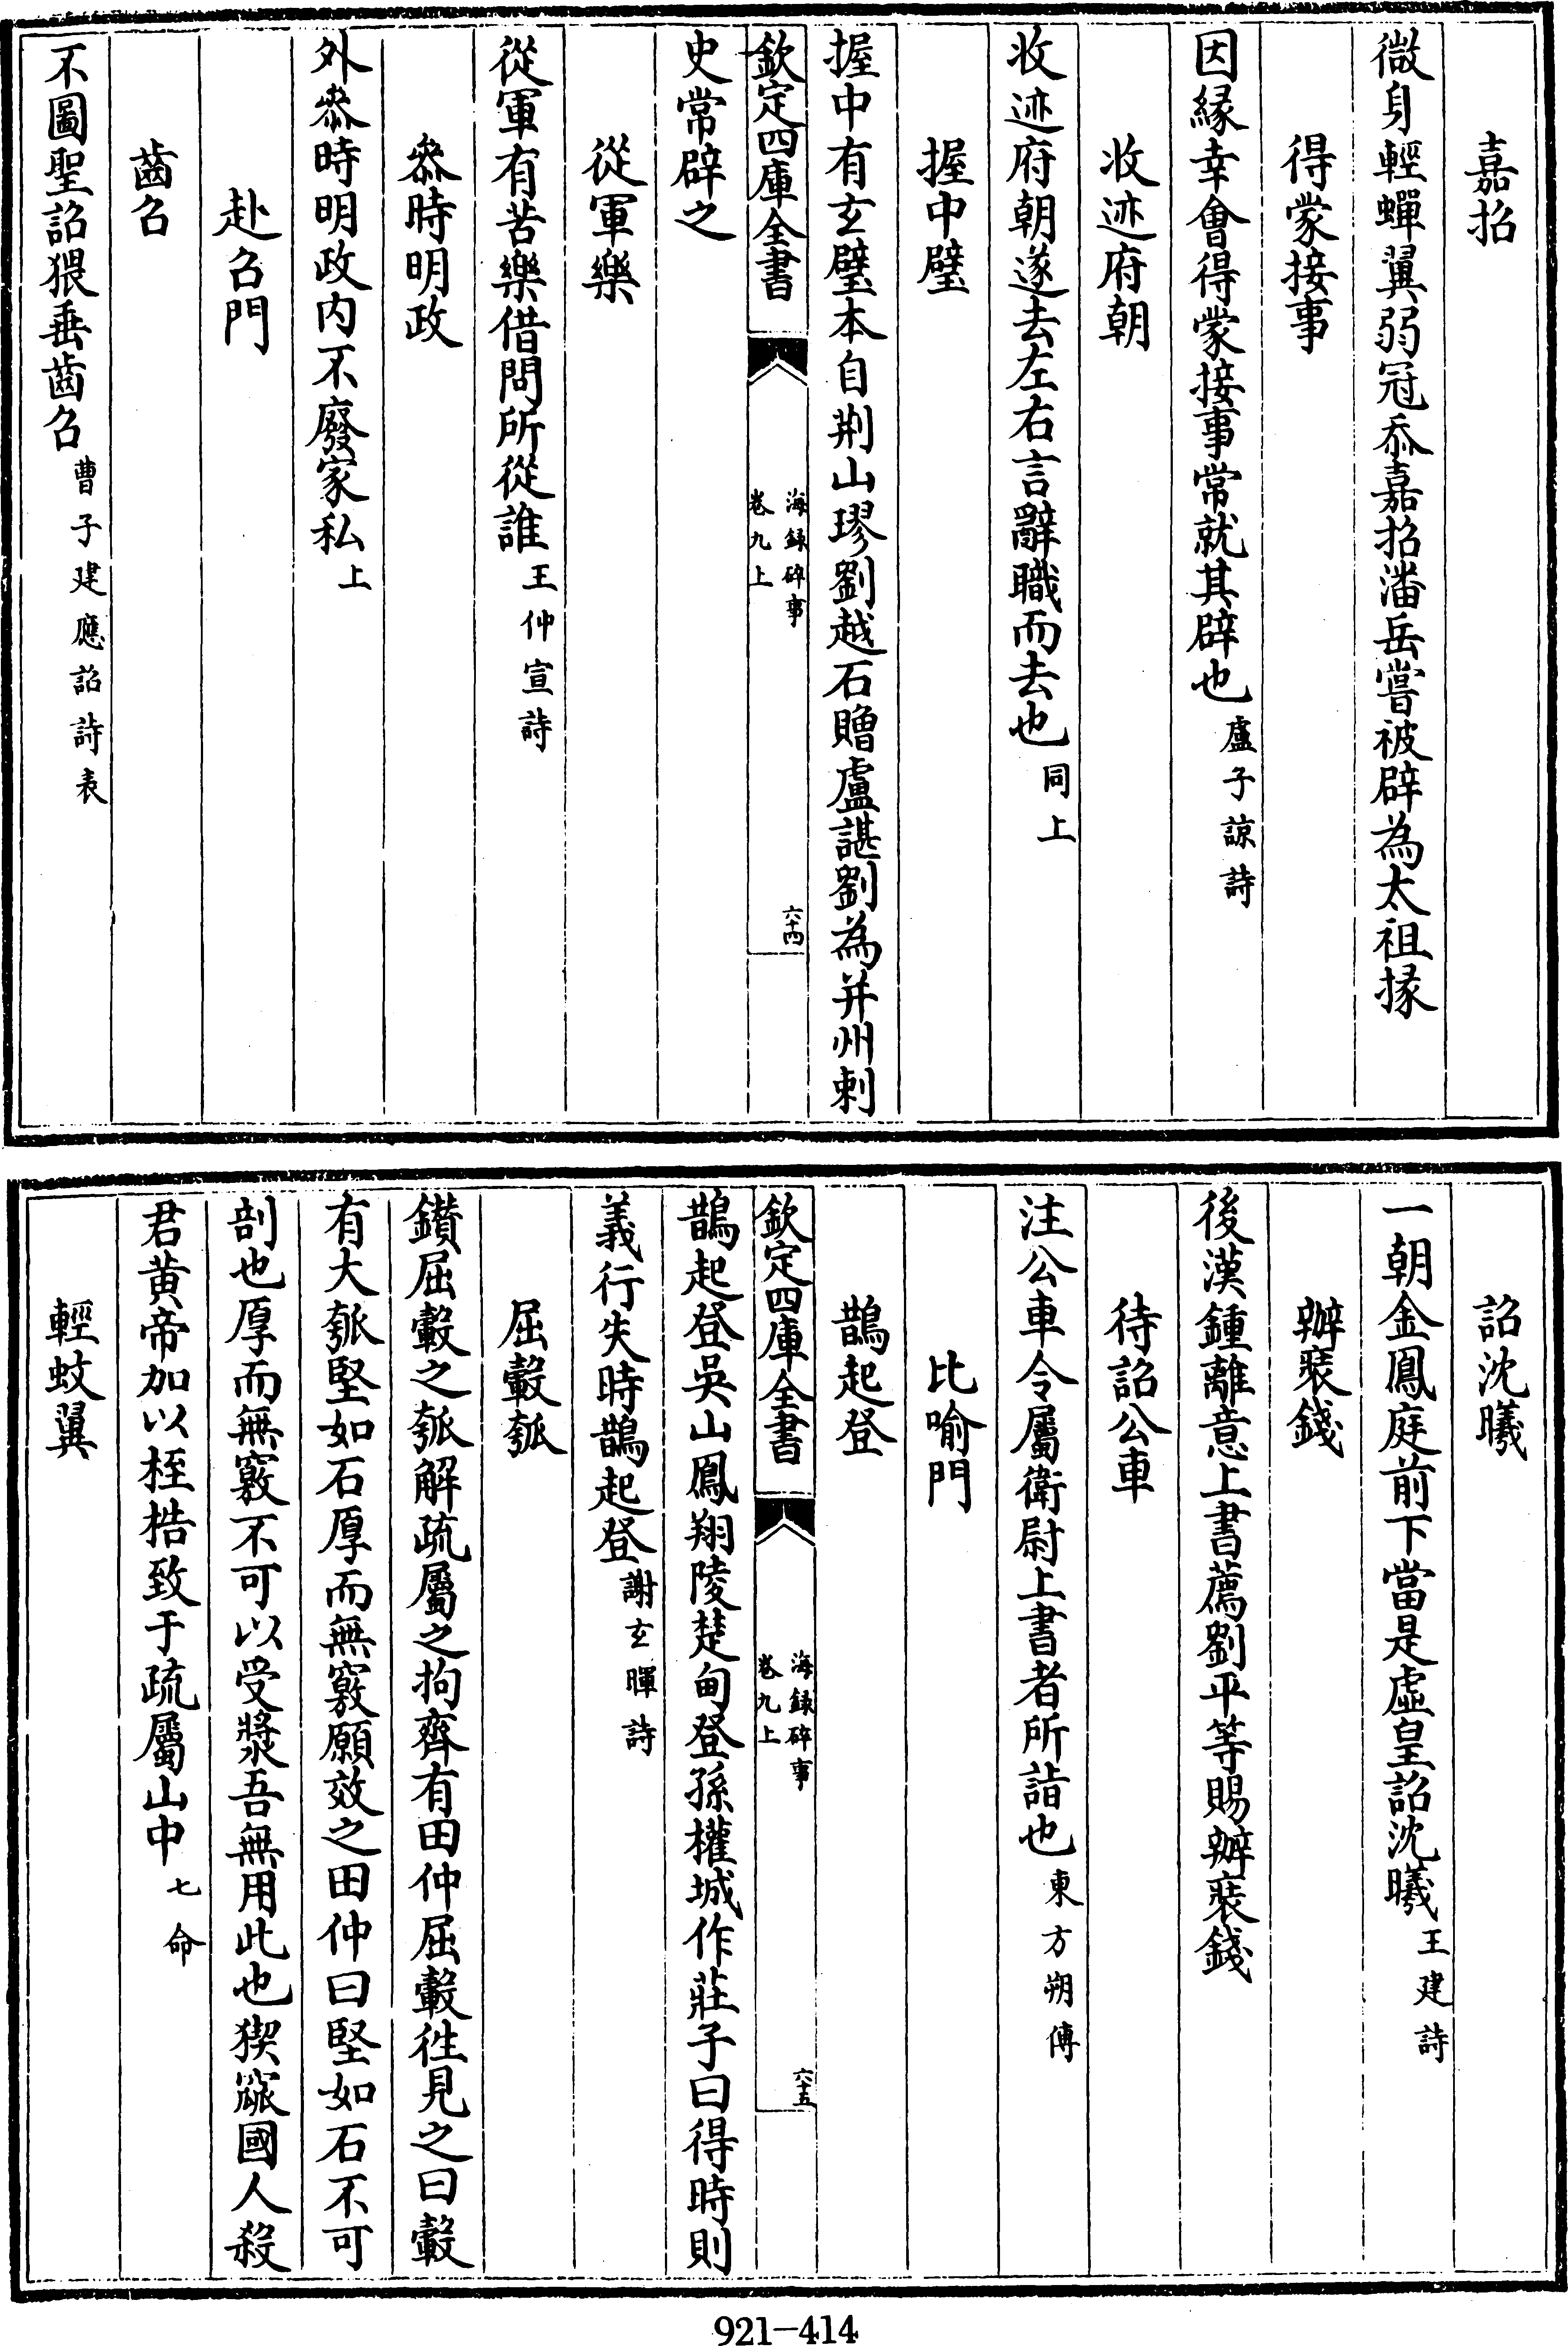 嘉招
微身輕蟬翼弱冠忝嘉招潘岳嘗被辟為太祖掾
得蒙接事
因緣幸會得蒙接事常就其辟也盧子諒詩
收迹府朝
收迹府朝遂去左右言辭職而去也同上
握中璧
握中有玄璧本自荆山璆劉越石贈盧諶劉為并州刺
欽定四庫全書
海録碎事
卷九上
六十四
史常辟之
從軍樂
從軍有苦樂借問所從誰王仲宣詩
叅時明政
外叅時明政内不廢家私上
赴召門
齒召
不圖聖詔猥垂齒召曹子建應詔詩表
詔沈曦
一朝金鳳庭前下當是虛皇詔沈曦王建詩
辦裝錢
後漢鍾離意上書薦劉平等賜辦裝錢
待詔公車
注公車令屬衛尉上書者所詣也東方朔傳
比喻門
鵲起登
欽定四庫全書
海録碎事
卷九上
六十五
鵲起登吳山鳳翔陵楚甸登孫權城作莊子曰得時則
義行失時鵲起登謝玄暉詩
屈轂瓠
鑚屈轂之瓠解疏屬之拘齊有田仲屈轂徃見之曰轂
有大瓠堅如石厚而無竅願效之田仲曰堅如石不可
剖也厚而無竅不可以受漿吾無用此也猰窳國人殺
君黄帝加以桎梏致于疏屬山中七命
輕蚊翼
921-414